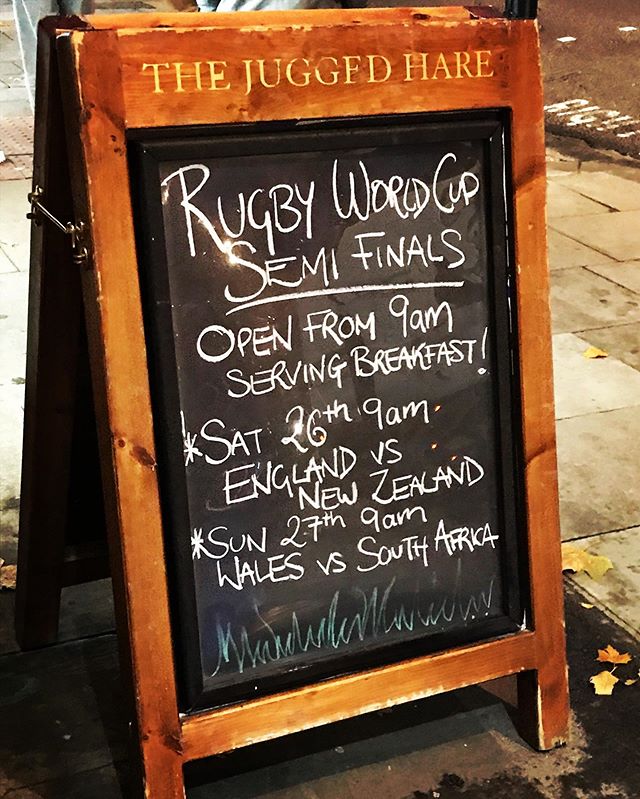 THE JUGGED HARE
RUGBY WORLD CUP
SEMI FINALS
OPEN FROM 9am
SERVING BREAKFAST!
*SAT 26th 9am
ENGLAND VS
NEW ZEALAND
*SUN 27th 9am
WALES VS SOUTH AFRICA